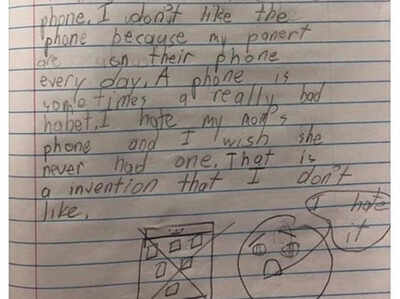 phone. I don't like the
phone because my panert
are on their phone
every day. A phone is
sometimes a really bad
habet. I hate my mom's
phone and I wish she
never had one. That is
a invention that I don't
like.
I hate
it